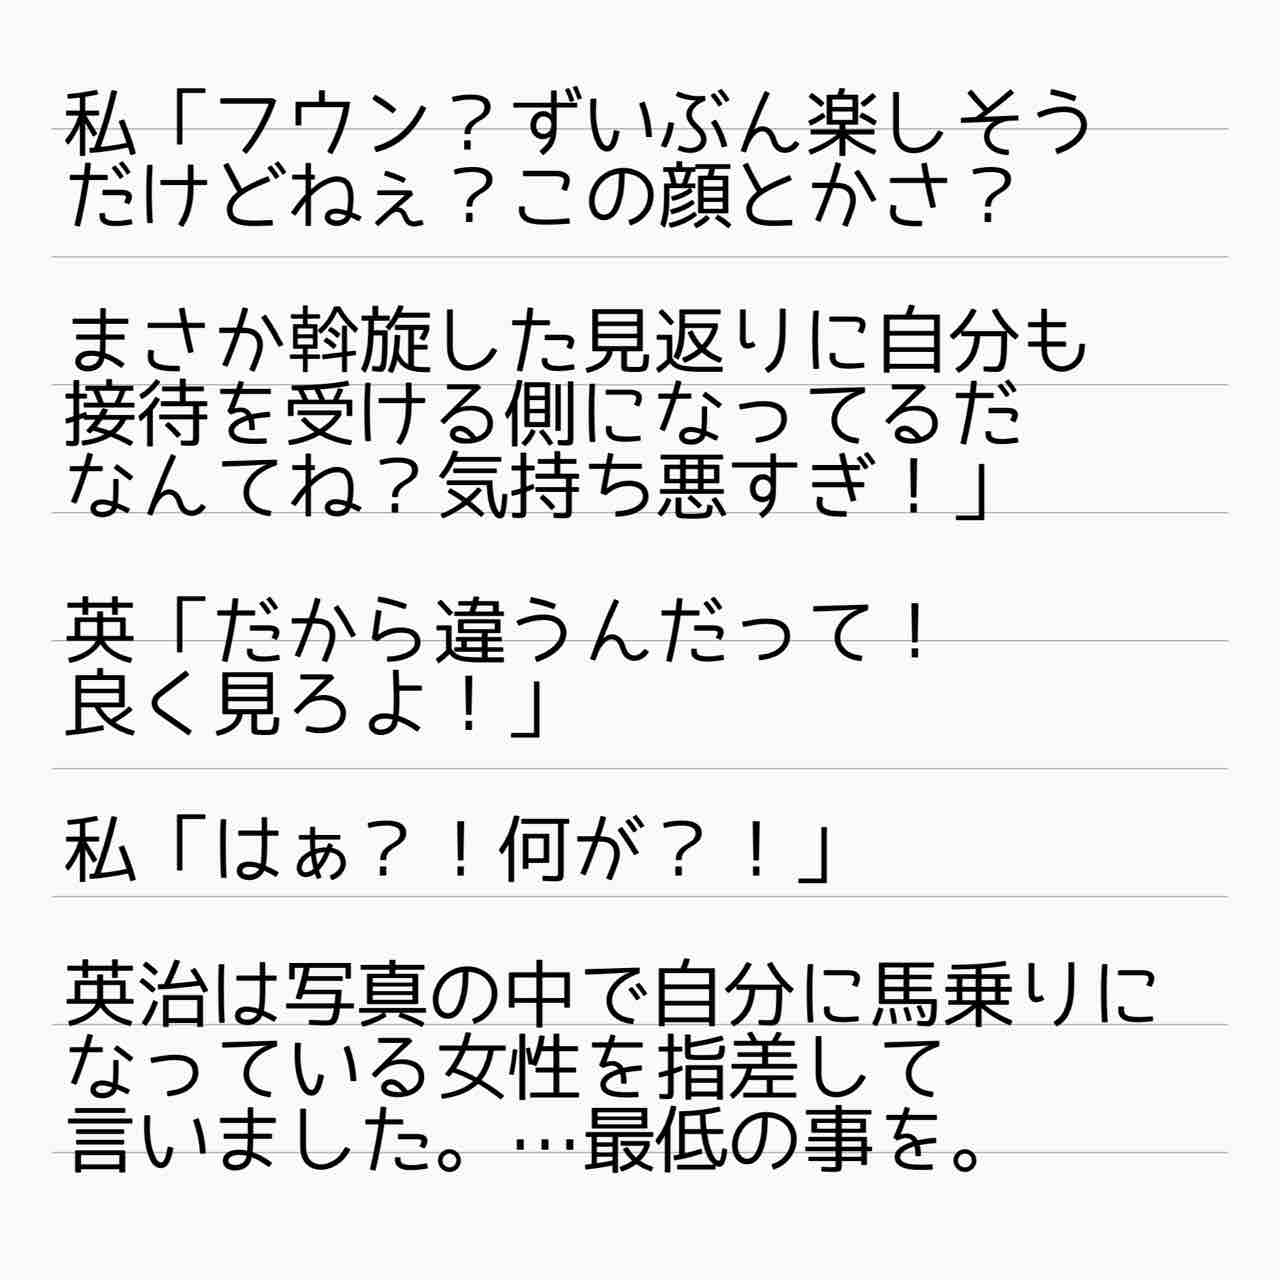 私「フウン？ずいぶん楽しそう
だけどねぇ？この顔とかさ？
まさか斡旋した見返りに自分も
接待を受ける側になってるだ
なんてね？気持ち悪すぎ！」
英「だから違うんだって！
良く見ろよ！」
私「はぁ？！何が？！」
英治は写真の中で自分に馬乗りに
なっている女性を指差して
言いました。…最低の事を。